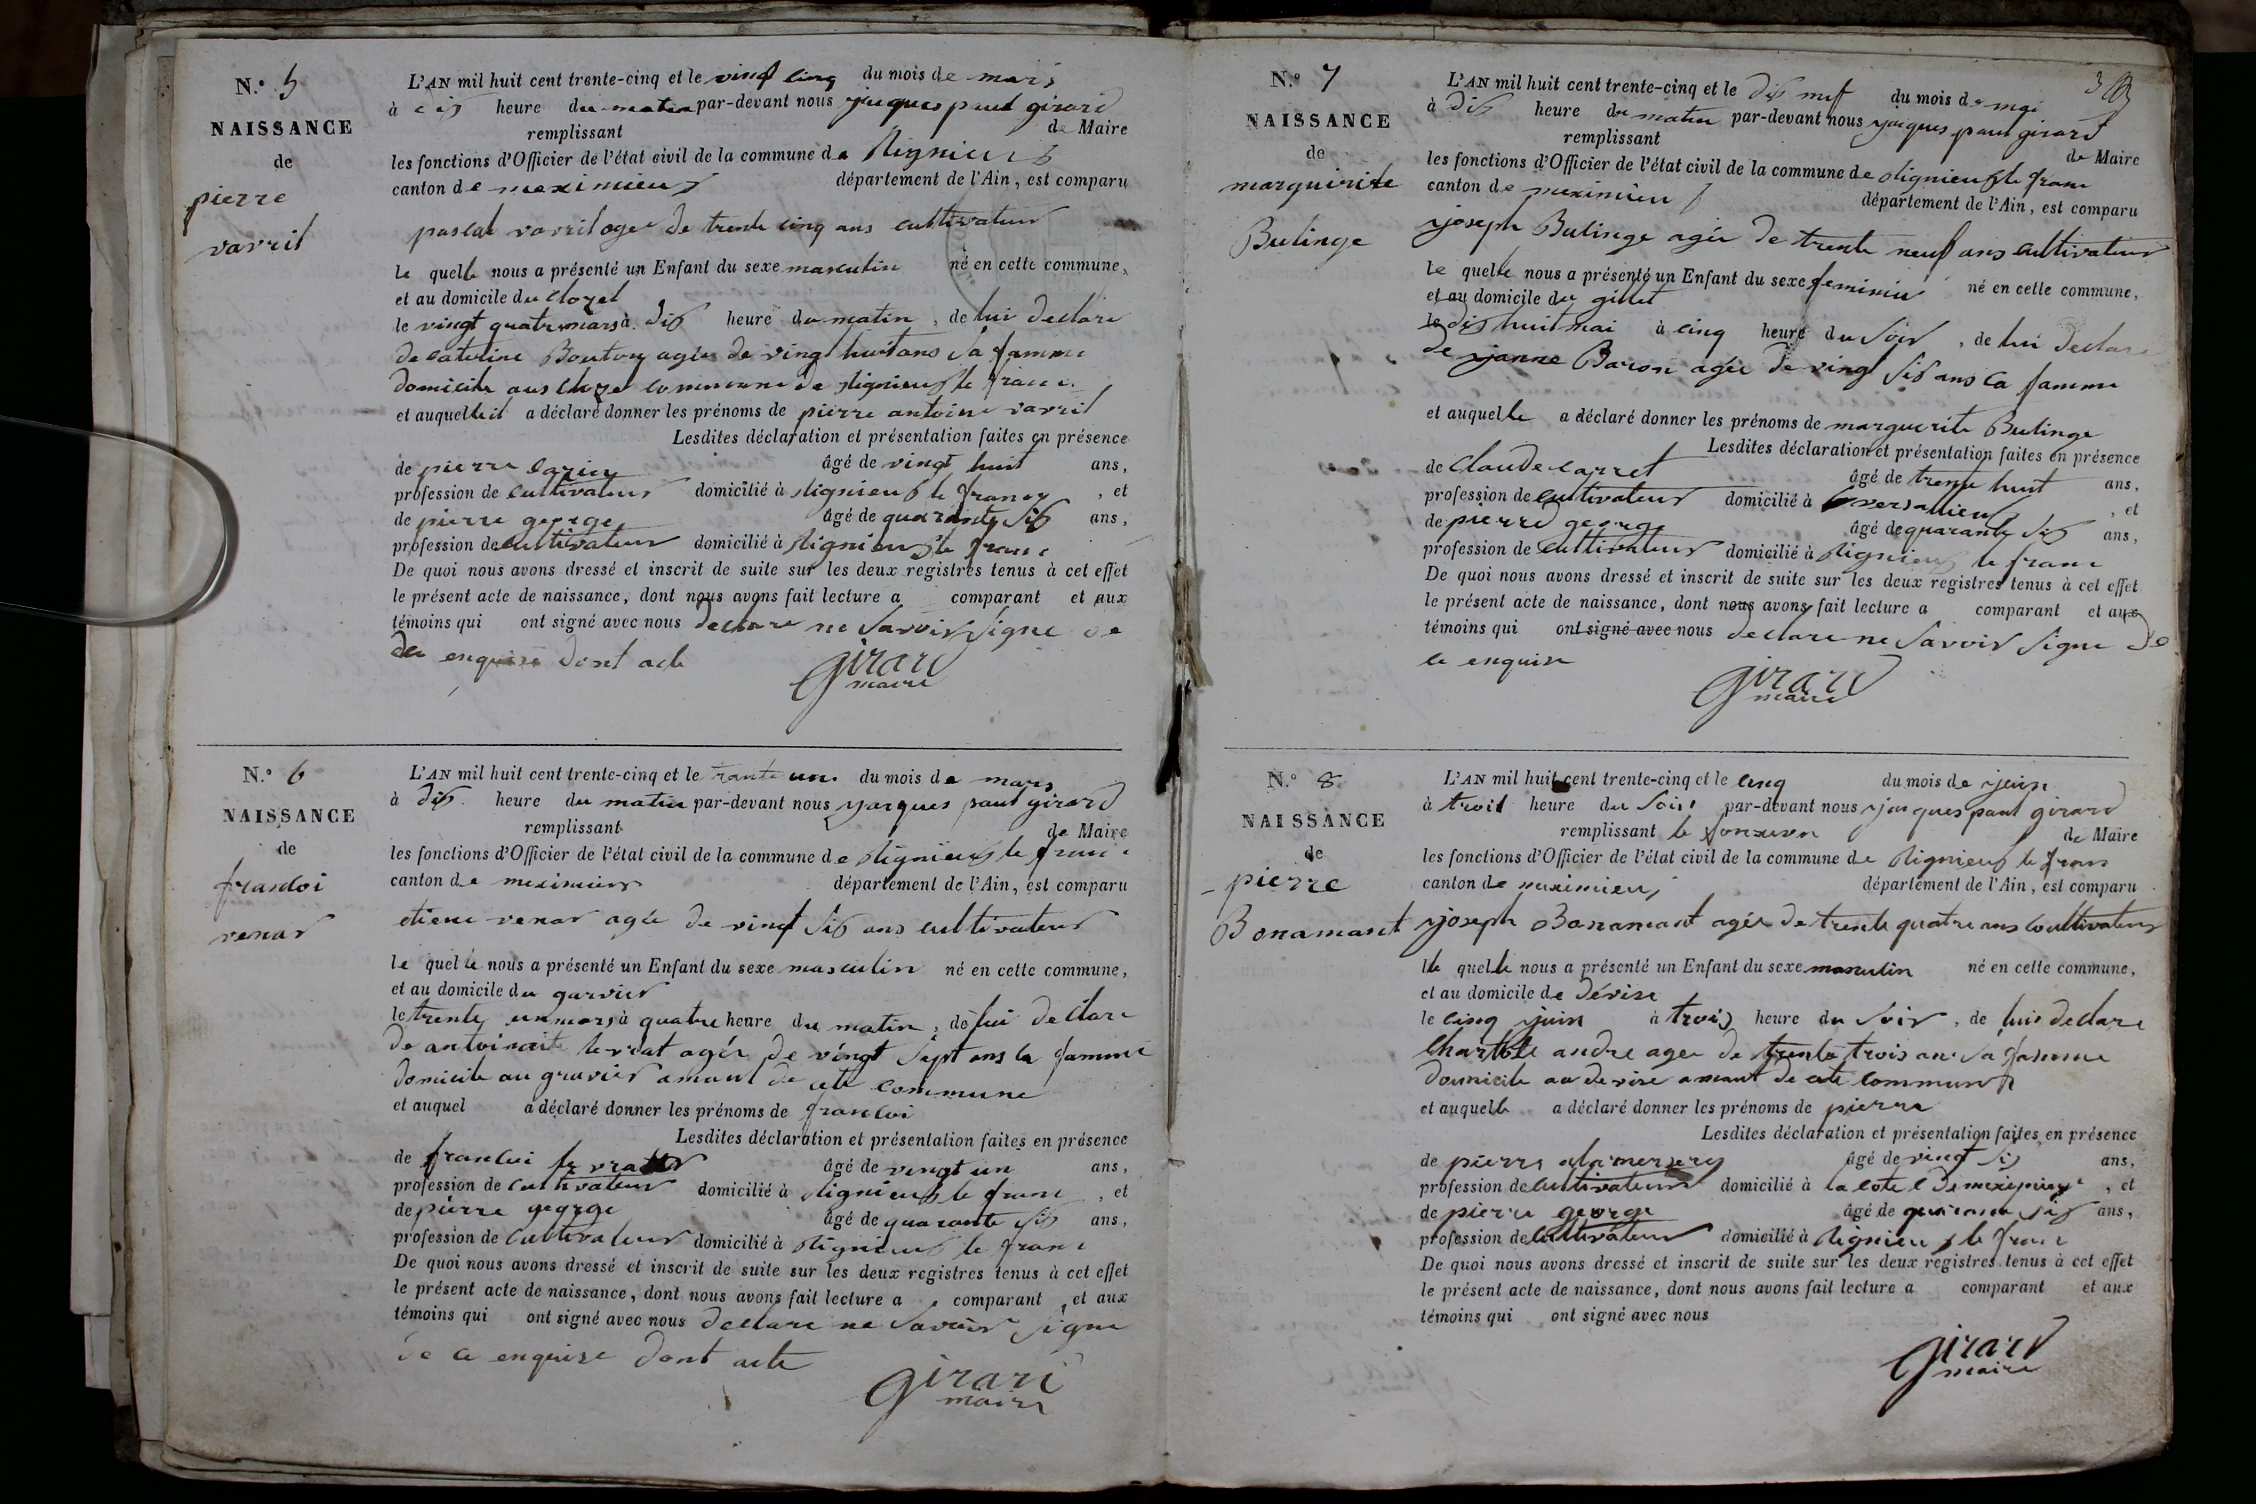 N.° 5
NAISSANCE
de
pierre
vavril
L'AN mil huit cent trente-cinq et le vinq cinq du mois de mars
à heure du matin par-devant nous yacques paul girard
remplissant de Maire
les fonctions d'Officier de l'état civil de la commune de Rignieux
canton de meximieux département de l'Ain, est comparu
pascal vavril agee de trente cinq ans cultivateur
le quelle nous a présenté un Enfant du sexe masculin né en cette commune,
et au domicile du clozel
le vingt quatre mars à dix heure du matin, de lui declare
de caterine Bouton agée de vingt huit ans sa famme
domicile aus clozel commune de Rignieux le franc
et auquelle il a déclaré donner les prénoms de pierre antoine vavril
Lesdites déclaration et présentation faites en présence
de pierre âgé de vingt huit ans,
profession de cultivateur domicilié à Rignieux le franc, et
de pierre george âgé de quarante six ans,
profession de cultivateur domicilié à Rignieux le franc
De quoi nous avons dressé et inscrit de suite sur les deux registres tenus à cet effet
le présent acte de naissance, dont nous avons fait lecture a comparant et aux
témoins qui ont signé avec nous declare ne savoir signe de
enquise dont acte
girard
maire
N.° 6
NAISSANCE
de
francoi
venar
L'AN mil huit cent trente-cinq et le trante un du mois de mars
à dix heure du matin par-devant nous yacques paul girard
remplissant de Maire
les fonctions d'Officier de l'état civil de la commune de Rignieux le franc
canton de meximieux département de l'Ain, est comparu
etiene venar agée de vinq six ans cultivateur
le quelle nous a présenté un Enfant du sexe masculin né en cette commune,
et au domicile du gravier
le trente un mars à quatre heure du matin, de lui declare
de antoinaite levrat agée de vingt sept ans sa famme
domicile au gravier amaut de cete commune
et auquel a déclaré donner les prénoms de francoi
Lesdites déclaration et présentation faites en présence
de francoi âgé de vingt un ans,
profession de cultivateur domicilié à Rignieux le franc, et
de pierre george âgé de quarante six ans,
profession de cultivateur domicilié à Rignieux le franc
De quoi nous avons dressé et inscrit de suite sur les deux registres tenus à cet effet
le présent acte de naissance, dont nous avons fait lecture a comparant et aux
témoins qui ont signé avec nous declare ne savoir signe
de ce enquise dont acte
girard
maire
N.° 7
NAISSANCE
de
marguirite
Bulinge
3
L'AN mil huit cent trente-cinq et le dix neuf du mois de mai
à dix heure du matin par-devant nous yacques paul girard
remplissant de Maire
les fonctions d'Officier de l'état civil de la commune de Rignieux le franc
canton de meximieux département de l'Ain, est comparu
yjoseph Bulinge agée de trente neuf ans cultivateur
le quelle nous a présenté un Enfant du sexe feminin né en cette commune,
et au domicile du gillet
le dix huit mai à cinq heure du soir, de lui declare
de yjanne Baron agée de ving six ans sa famme
et auquelle a déclaré donner les prénoms de marguerite Bulinge
Lesdites déclaration et présentation faites en présence
de claude carret âgé de trente huit ans,
profession de cultivateur domicilié à versailleux, et
de pierre george âgé de quarante six ans,
profession de cultivateur domicilié à Rignieux le franc
De quoi nous avons dressé et inscrit de suite sur les deux registres tenus à cet effet
le présent acte de naissance, dont nous avons fait lecture a comparant et aux
témoins qui ont signé avec nous declare ne savoir signe de
ce enquise
girard
maire
N.° 8
NAISSANCE
de
pierre
Bonamant
L'AN mil huit cent trente-cinq et le cinq du mois de yjuin
à trois heure du soir par-devant nous yjacques paul girard
remplissant le fonxion de Maire
les fonctions d'Officier de l'état civil de la commune de Rignieux le franc
canton de meximieux département de l'Ain, est comparu
yjoseph Bonamant agée de trente quatre ans coultivateur
le quelle nous a présenté un Enfant du sexe masculin né en cette commune,
et au domicile de dévise
le cinq yjuin à trois heure du soir, de lui declare
charlote andre agee de trente trois ans sa famme
domicile au devise amaut de cete commune
et auquelle a déclaré donner les prénoms de pierre
Lesdites déclaration et présentation faites en présence
de pierre âgé de vinqt six ans,
profession de cultivateur domicilié à la cotel de meximieux, et
de pierre george âgé de quarante six ans,
profession de cultivateur domicilié à Rignieux le franc
De quoi nous avons dressé et inscrit de suite sur les deux registres tenus à cet effet
le présent acte de naissance, dont nous avons fait lecture a comparant et aux
témoins qui ont signé avec nous
girard
maire